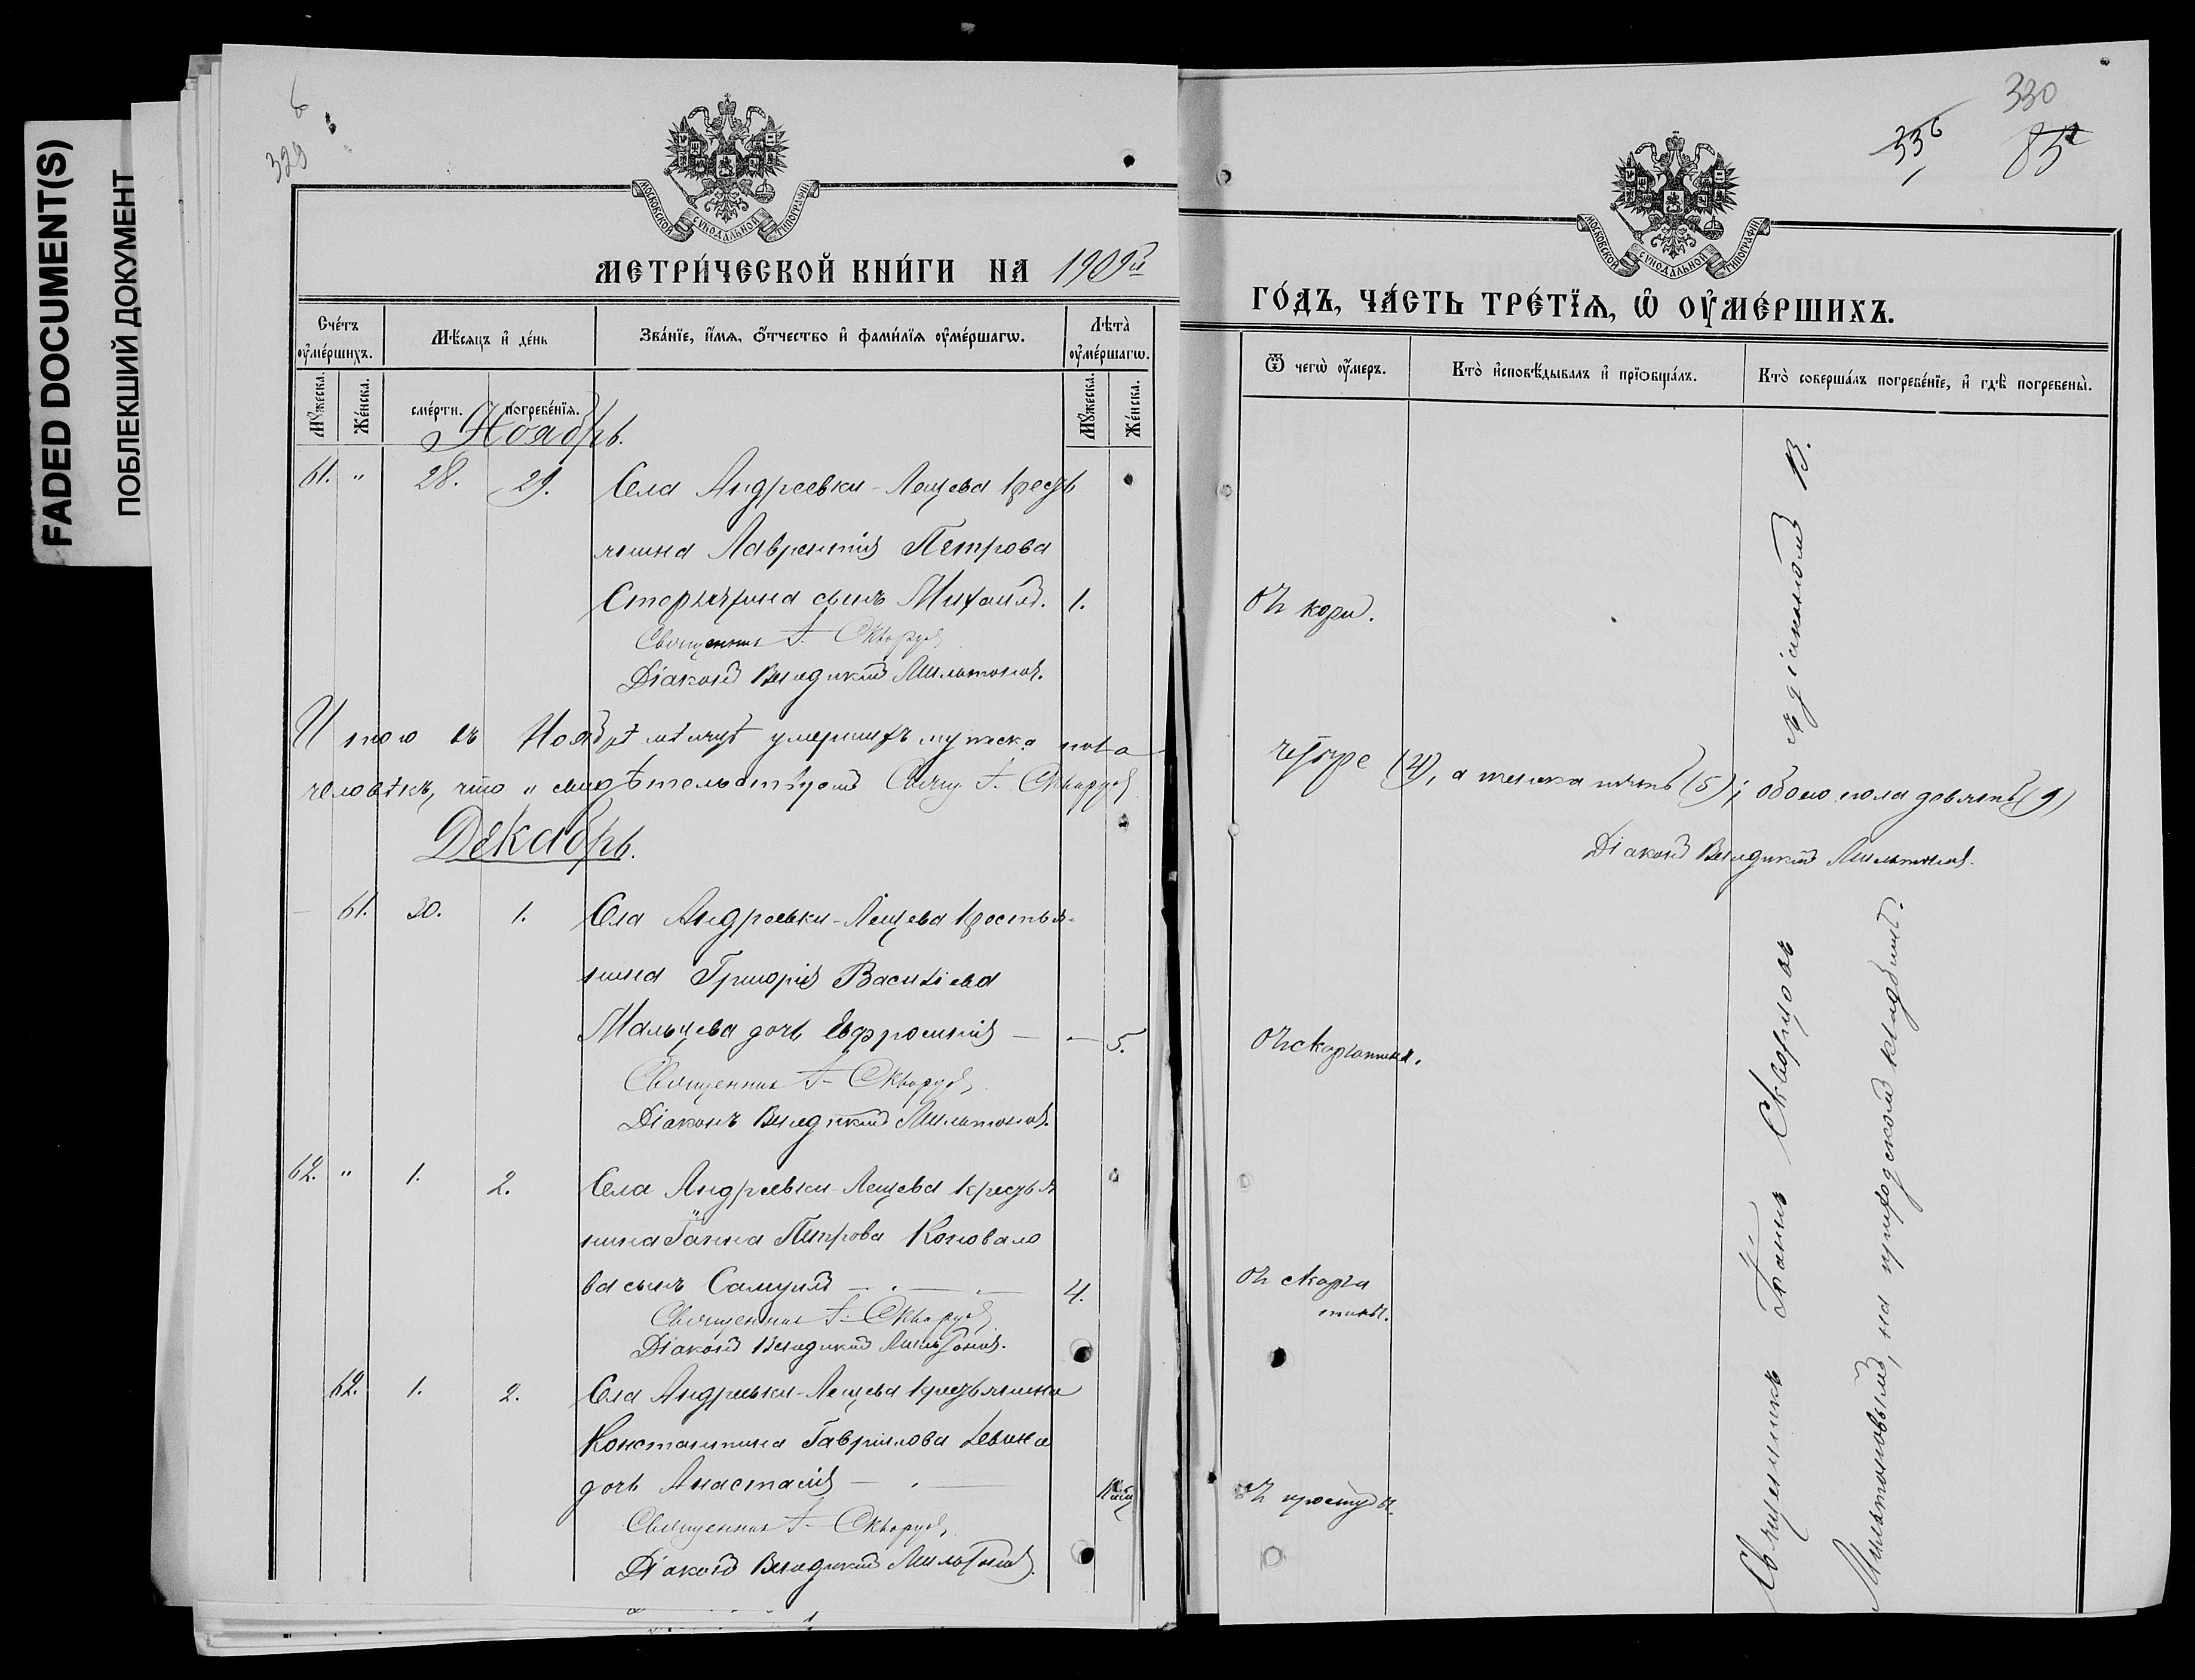 FADED DOCUMENT(S)
ПОБЛЕКШИЙ ДОКУМЕНТ
329
МОСКОВСКОЙ СѴНОДАЛЬНОЙ ТИПОГРАФІИ
МЕТРИ́ЧЕСКОЙ КНИ́ГИ НА 1909й
Сче́тъ оу҆ме́ршихъ.
Мѣ́сяцъ и҆ де́нь
Зва́нїе, и҆́мя, ѻ҆́тчество и҆ фами́лїя оу҆ме́ршагѡ.
Лѣ́та̀ оу҆ме́ршагѡ.
Мꙋ́жеска.
Же́нска.
сме́рти.
погребе́нїя.
Мꙋ́жеска.
Же́нска.
Ноябрь.
61. " 28. 29. Села Андреевки-Лещева крестъ
янина Лаврентія Петрова
сынъ Михаилъ. 1.
Священникъ І. Скворцовъ
Діаконъ Венедиктъ Мильтоновъ.
Итого въ Ноябрѣ мѣсяцѣ умершихъ мужеска пола
человѣкъ, что и свидѣтельствуютъ Свящ. І. Скворцовъ
Декабрь.
61. 30. 1. Села Андреевки-Лещева крестья-
нина Григорія Василіева
Мальцева дочь Евфросинія — — 5.
Священникъ І. Скворцовъ
Діаконъ Венедиктъ Мильтоновъ.
62. " 1. 2. Села Андреевки-Лещева крестья
нина Іоанна Петрова Коновало
ва сынъ Самуилъ 4.
Священникъ І. Скворцовъ
Діаконъ Венедиктъ Мильтоновъ.
62. 1. 2. Села Андреевки-Лещева крестьянина
Константина Гавриилова Левина
дочь Анастасія
Священникъ І. Скворцовъ
Діаконъ Венедиктъ Мильтоновъ.
330
336
МОСКОВСКОЙ СѴНОДАЛЬНОЙ ТИПОГРАФІИ
ГО́ДЪ, ЧА́СТЬ ТРЕ́ТЇЯ, Ѡ҆ ОУ҆МЕ́РШИХЪ.
Ѿ чегѡ̀ оу҆́меръ.
Кто̀ и҆сповѣ́дывалъ и҆ прїѻбща́лъ.
Кто̀ соверша́лъ погребе́нїе, и҆ гдѣ̀ погребены̀.
отъ кори.
четыре (4), а женска пять (5); обоего пола девять (9)
Діаконъ Венедиктъ Мильтоновъ.
отъ скарлатины.
отъ скарла
тины.
отъ простуды.
Священникъ Іоаннъ Скворцовъ съ діакономъ В.
Мильтоновымъ, на приходскомъ кладбищѣ.